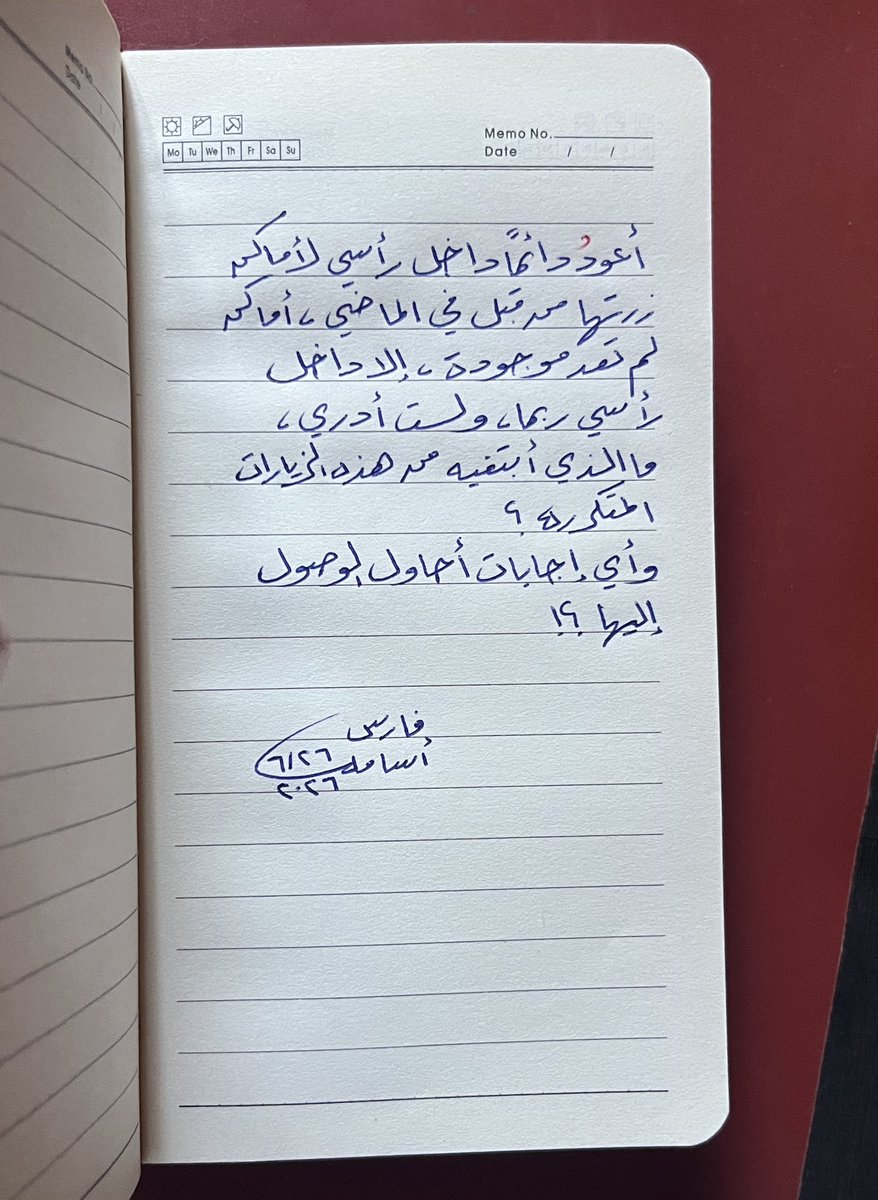 Memo No.
Date / /
Mo Tu We Th Fr Sa Su
أعودُ دائمًا داخل رأسي لأماكن
زرتها من قبل في الماضي، أماكن
لم تعد موجودة، إلا داخل
رأسي ربما، ولست أدري،
ما الذي أبتغيه من هذه الزيارات
المتكررة؟
وأي إجابات أحاول الوصول
إليها ؟!
فارس
أسامه ٦/٢٦
٢٠٢٦